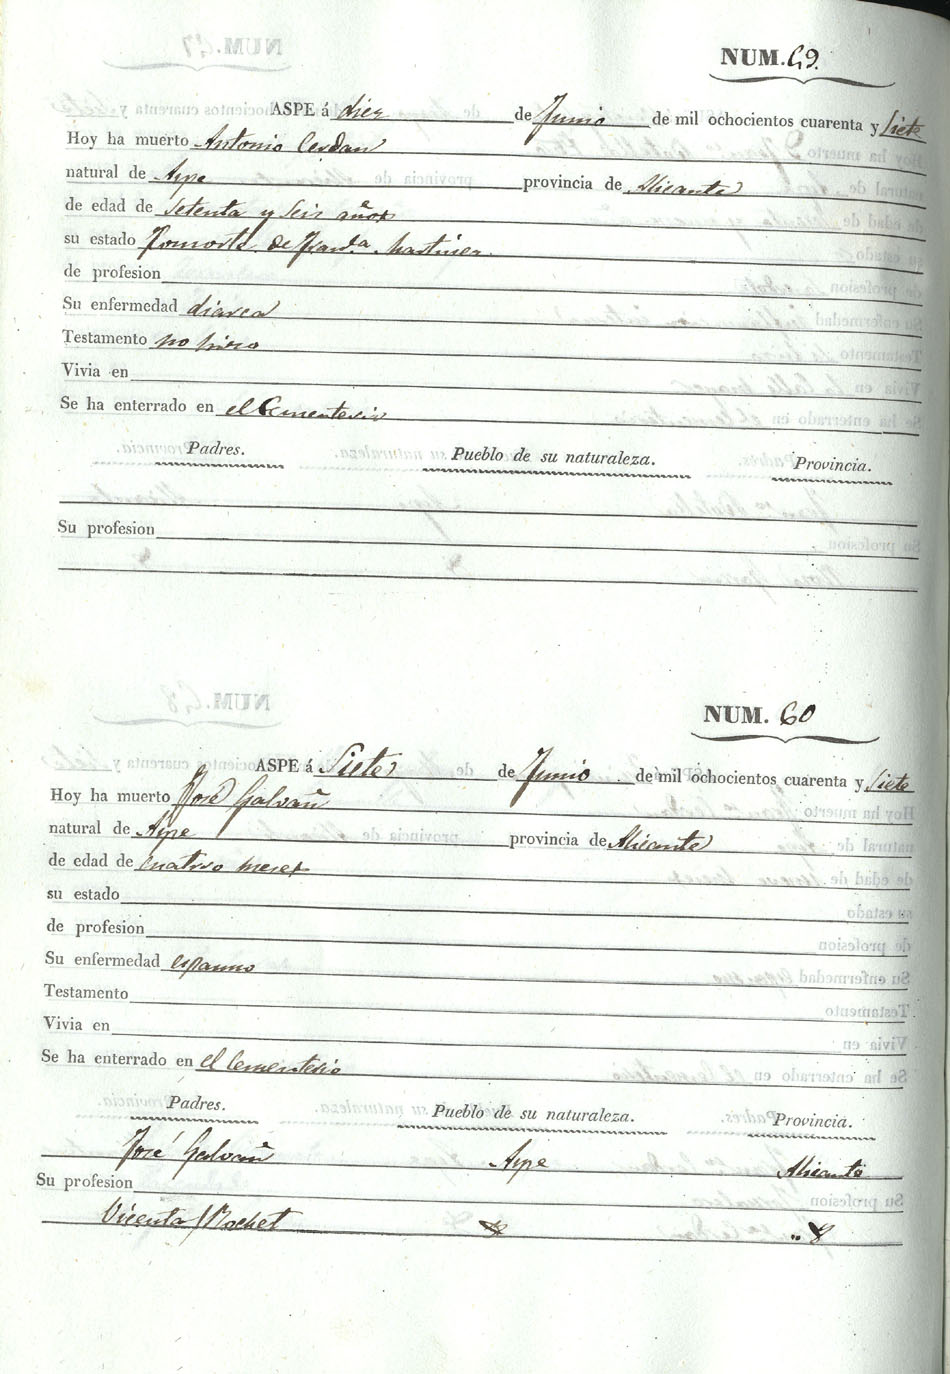 NUM. 59.
ASPE á diez de Junio de mil ochocientos cuarenta y Siete
Hoy ha muerto Antonio Cerdan
natural de Aspe provincia de Alicante
de edad de Setenta y Seis años
su estado Consorte de Franca. Martinez
de profesion
Su enfermedad diarea
Testamento no hizo
Vivia en
Se ha enterrado en el Cementerio
Padres. Pueblo de su naturaleza. Provincia.
Su profesion
NUM. 60
ASPE á Siete de Junio de mil ochocientos cuarenta y Siete
Hoy ha muerto José Galvañ
natural de Aspe provincia de Alicante
de edad de cuatro meses
su estado
de profesion
Su enfermedad espasmo
Testamento
Vivia en
Se ha enterrado en el Cementerio
Padres. Pueblo de su naturaleza. Provincia.
José Galvañ Aspe Alicante
Su profesion
Vicenta Bochet